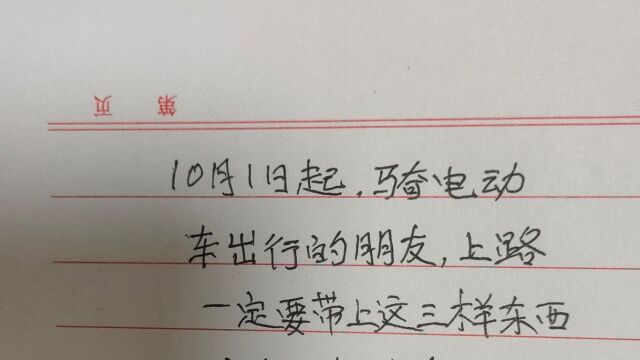 第 页
10月1日起,骑电动
车出行的朋友,上路
一定要带上这三样东西